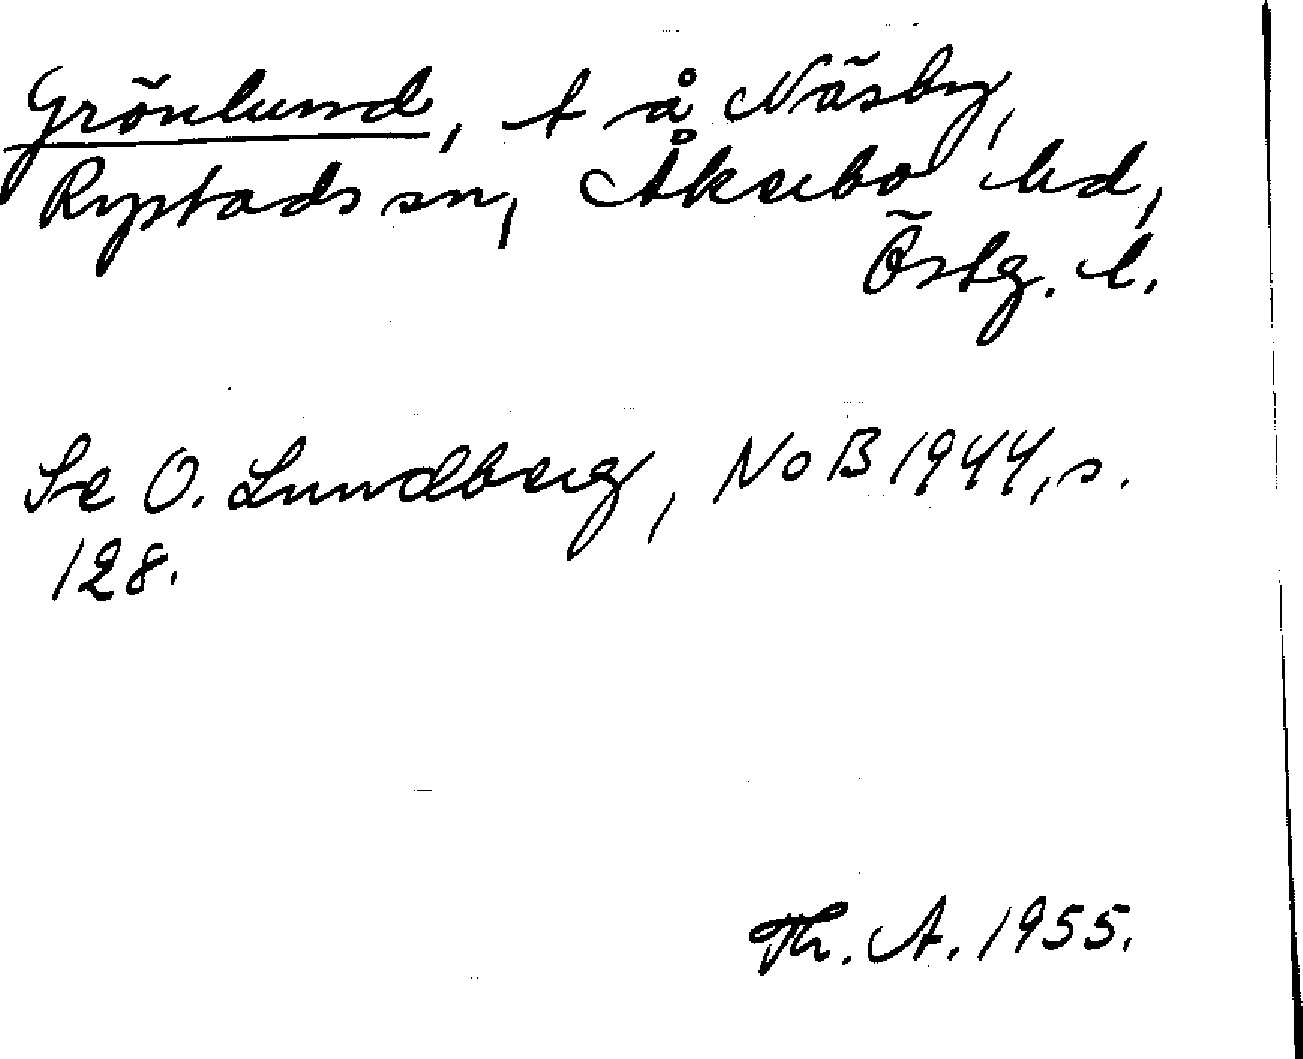 Grönlund, t å Näsby,
Rystads sn, Åkerbo hd,
Östg. l.
Se O. Lundberg, NoB 1944, s.
128.
Th. A. 1955.